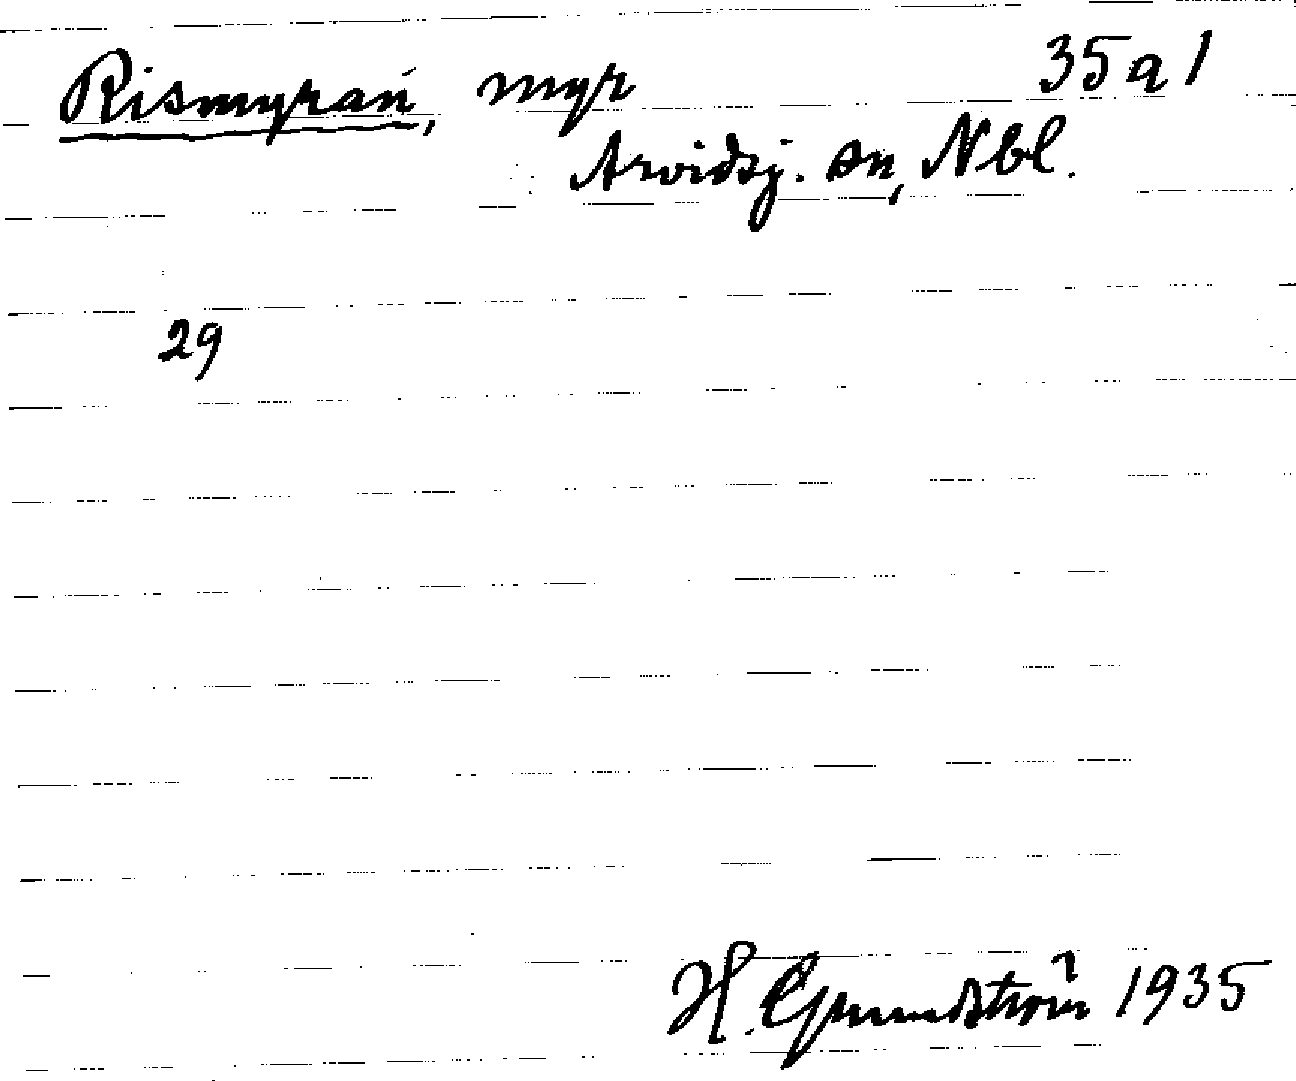 Rismyran, myr 35 a 1
Arvidsj. sn, Nbl.
29
H. Grundström 1935